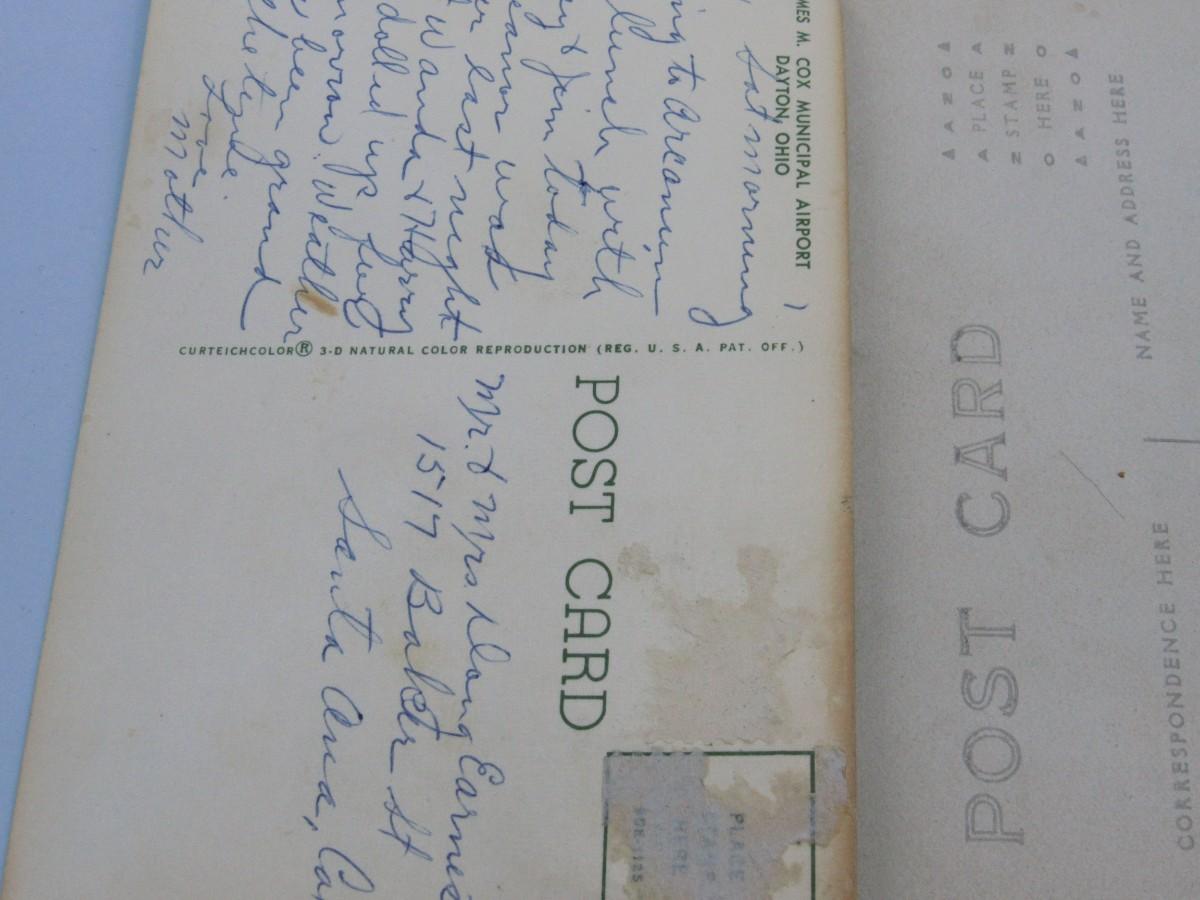 MES M. COX MUNICIPAL AIRPORT
DAYTON, OHIO
Sat morning
ng to Arcanum
lunch with
y & Jim today
eanor was
r last night
Wanda & Harry
dolled up fung
morrow. Weather
s been grand
he te
Love
Mother
CURTEICHCOLOR® 3-D NATURAL COLOR REPRODUCTION (REG. U. S. A. PAT. OFF.)
POST CARD
Mr. & Mrs. Doug Earnes
1517 Baker St
Santa Ana, Ca
PLACE
STAMP
HERE
POST CARD
AZOA
PLACE
STAMP
HERE
AZOA
NAME AND ADDRESS HERE
CORRESPONDENCE HERE